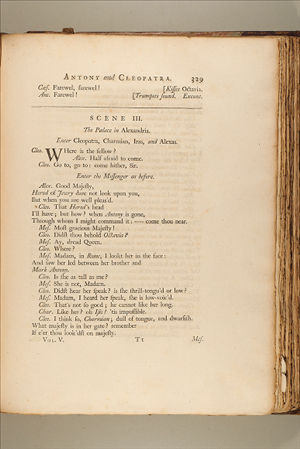 ANTONY and CLEOPATRA. 329
Cæs. Farewel, farewel! [Kisses Octavia.
Ant. Farewel! [Trumpets sound. Exeunt.
SCENE III.
The Palace in Alexandria.
Enter Cleopatra, Charmian, Iras, and Alexas.
Cleo. WHere is the fellow?
Alex. Half afraid to come.
Cleo. Go to, go to: come hither, Sir.
Enter the Messenger as before.
Alex. Good Majesty,
Herod of Jewry dare not look upon you,
But when you are well pleas'd.
Cleo. That Herod's head
I'll have; but how? when Antony is gone,
Through whom I might command it: — come thou near.
Mes. Most gracious Majesty!
Cleo. Didst thou behold Octavia?
Mes. Ay, dread Queen.
Cleo. Where?
Mes. Madam, in Rome, I lookt her in the face:
And saw her led between her brother and
Mark Antony.
Cleo. Is she as tall as me?
Mes. She is not, Madam.
Cleo. Didst hear her speak? is she shrill-tongu'd or low?
Mes. Madam, I heard her speak, she is low-voic'd.
Cleo. That's not so good; he cannot like her long.
Char. Like her? oh Isis! 'tis impossible.
Cleo. I think so, Charmian; dull of tongue, and dwarfish.
What majesty is in her gate? remember
If e'er thou look'dst on majesty.
VOL. V. Tt Mes.